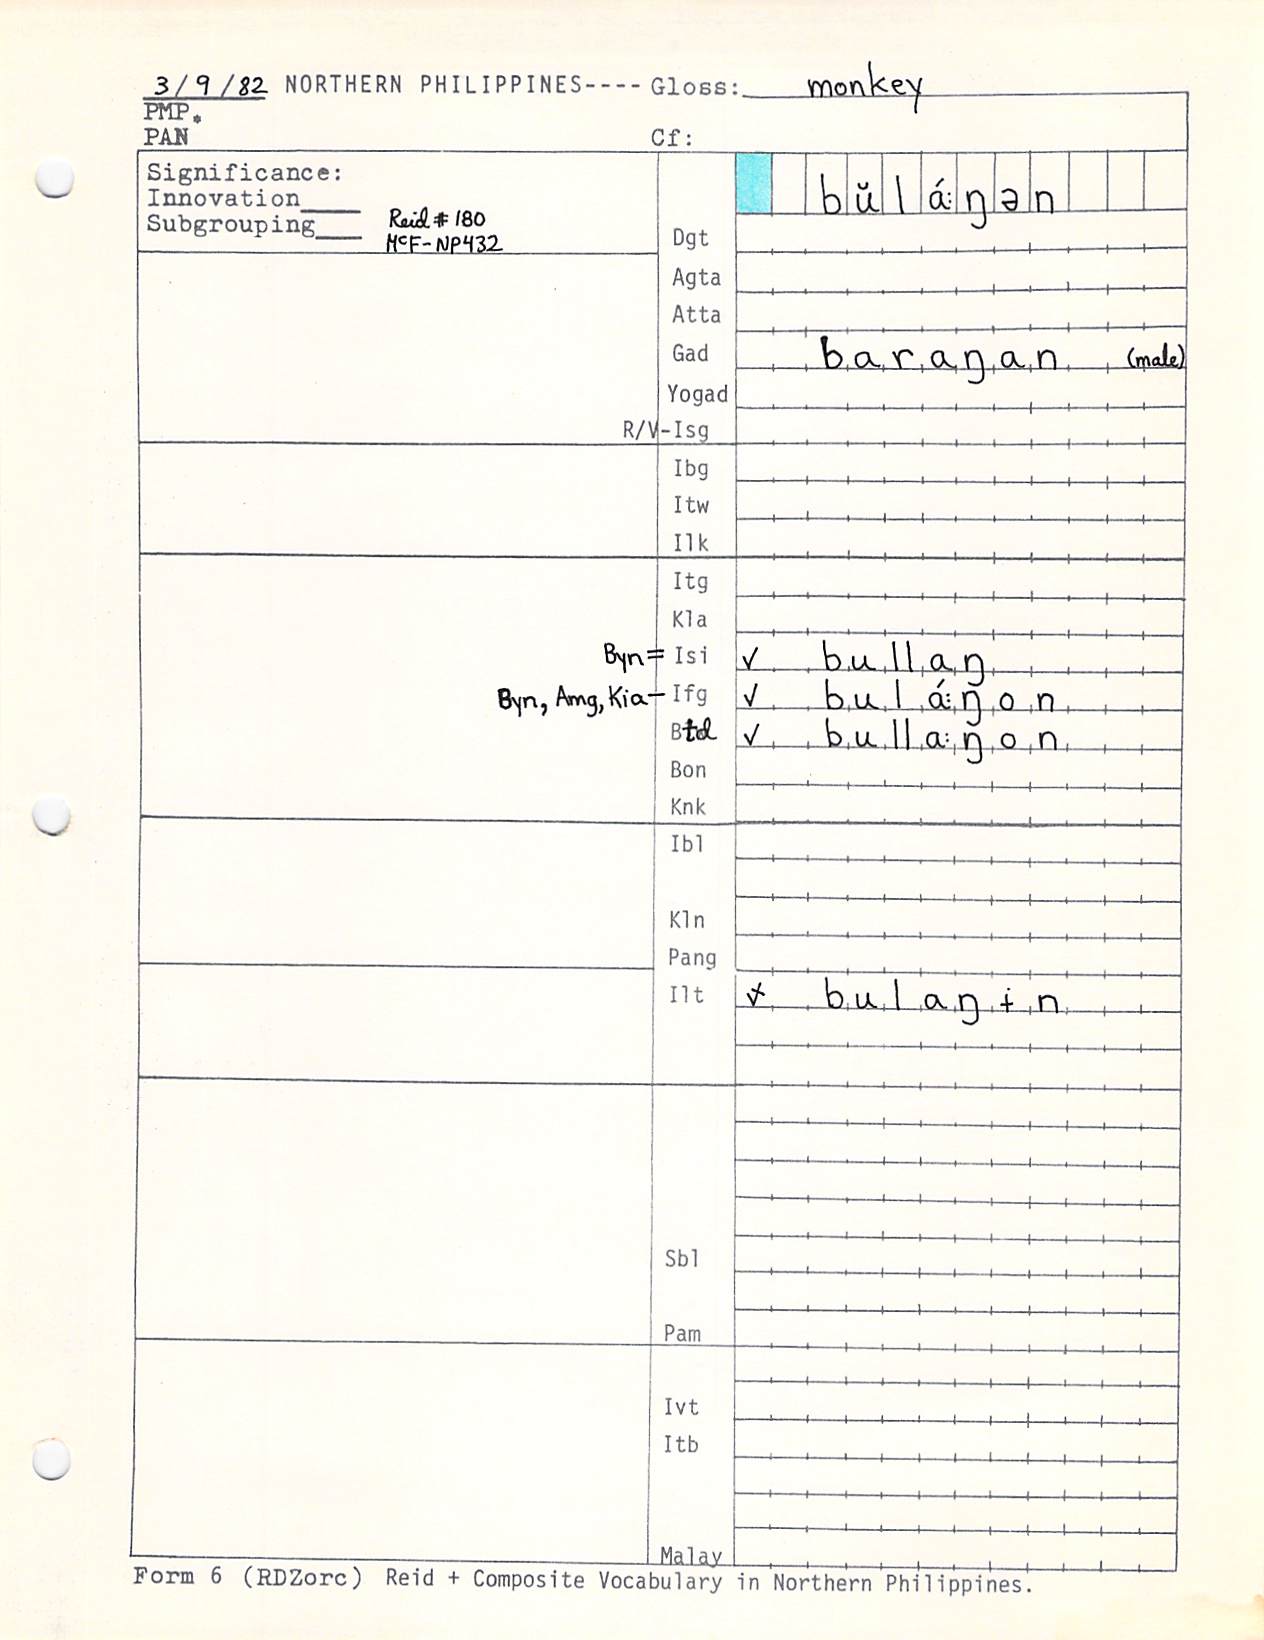 3/9/82 NORTHERN PHILIPPINES---- Gloss: monkey
PMP.
PAN Cf:
Significance:
Innovation____
Subgrouping____ Reid # 180
McF-NP432
bŭlá:ŋən
Dgt
Agta
Atta
Gad baraŋan (male)
Yogad
R/V-Isg
Ibg
Itw
Ilk
Itg
Kla
Byn = Isi ✓ bullaŋ
Byn, Amg, Kia - Ifg ✓ bulá:ŋon
Btd ✓ bulla:ŋon
Bon
Knk
Ibl
Kln
Pang
Ilt ✓ bulaŋɨn
Sbl
Pam
Ivt
Itb
Malay
Form 6 (RDZorc) Reid + Composite Vocabulary in Northern Philippines.